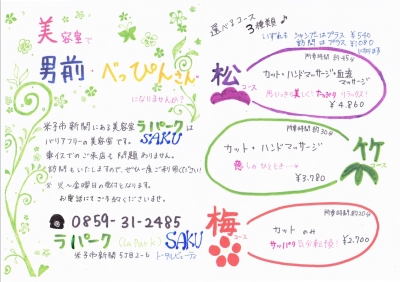 美容室で
男前・べっぴんさん
になりませんか?
米子市新開にある美容室ラパークSAKUは
バリアフリーの美容室です。
車イスでのご来店も問題ありません。
訪問もいたしますので、ぜひ一度ご利用ください!
※ 火〜金曜日の受付となります。
お電話にてご予約くださいませ。
0859-31-2485
ラパーク(La Park) SAKU
米子市新開5丁目2-6 トータルビューティ
選べるコース3種類♪
いずれも シャンプーはプラス ¥540
訪問はプラス ¥1080
になります
松コース
所要時間 約45分
カット・ハンドマッサージ・血流マッサージ
美しく リラックス!
¥4.860
竹コース
所要時間 約30分
カット・ハンドマッサージ
癒しのひととき…♥
¥3.780
梅コース
所要時間 約20分
カットのみ
サッパリ気分転換!
¥2.700